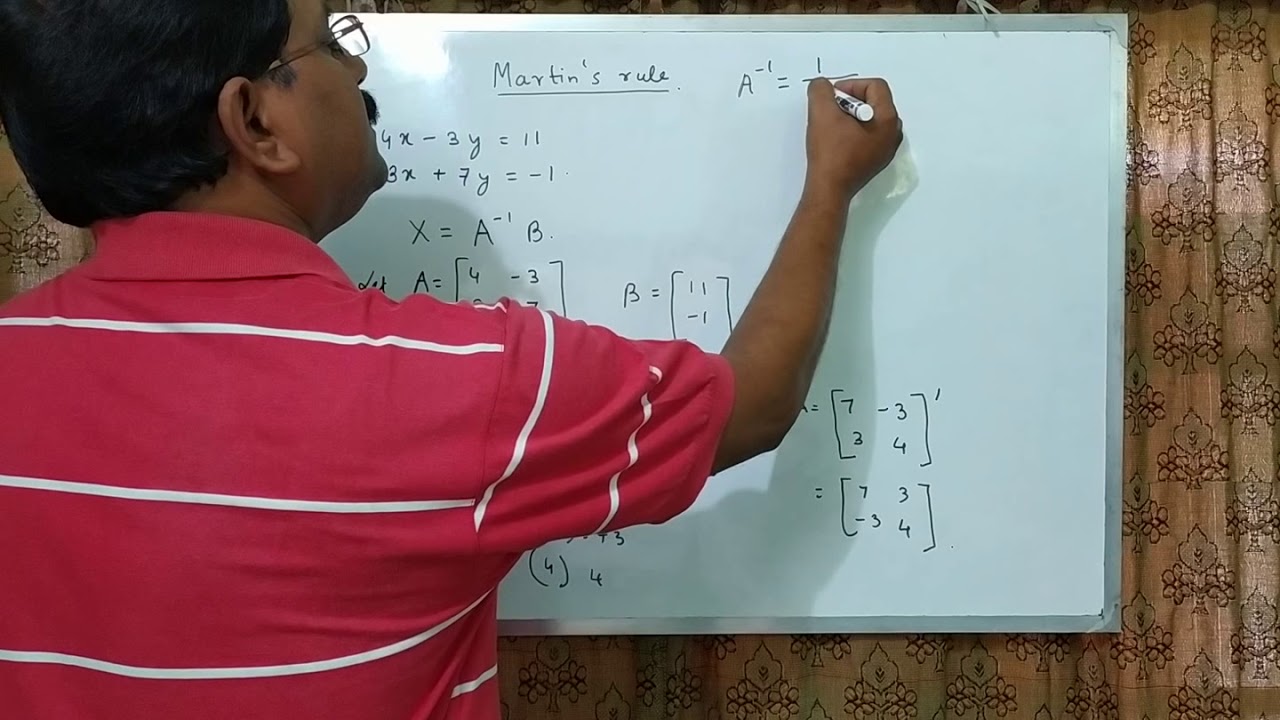 Martin's rule.
A⁻¹ = 1
4x - 3y = 11
3x + 7y = -1.
X = A⁻¹ B.
Let A = [4 -3
B = [11
-1]
= [7 -3
3 4]'
= [7 3
-3 4].
+3
(4) 4